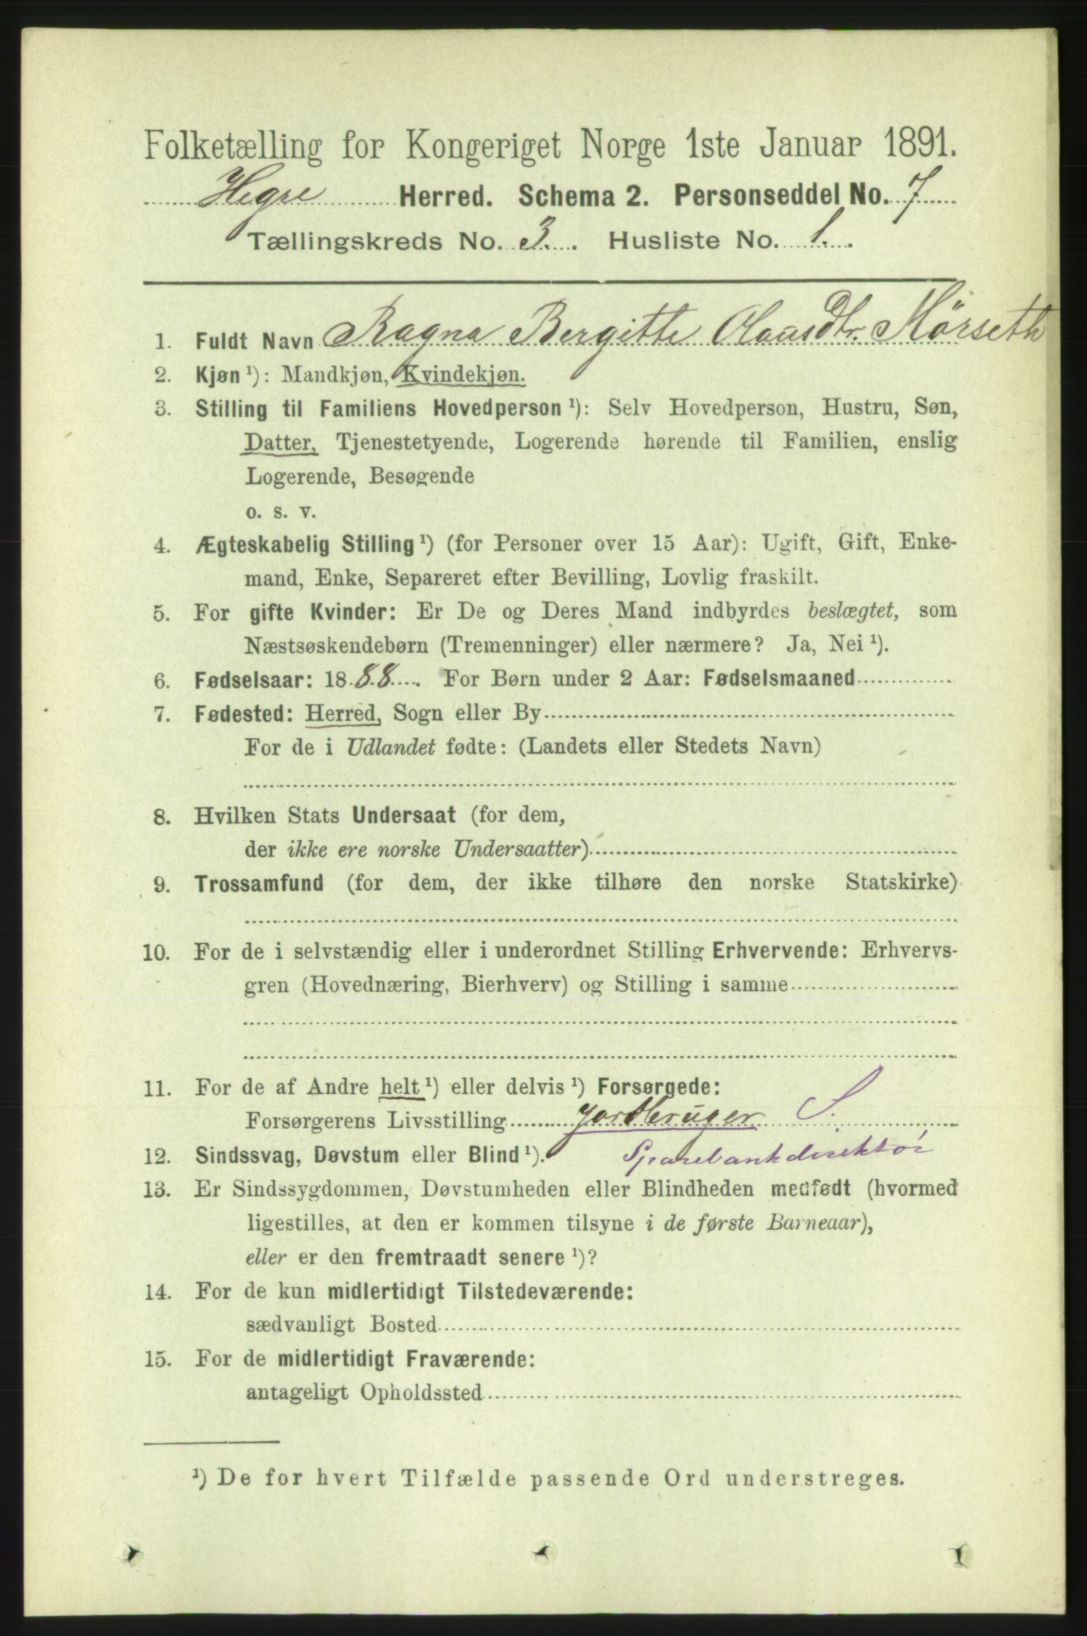 Folketælling for Kongeriget Norge 1ste Januar 1891.
Hegre Herred. Schema 2. Personseddel No. 7
Tællingskreds No. 3. Husliste No. 1.
1. Fuldt Navn Ragna Bergitte Olausdtr. Mörseth
2. Kjøn ¹): Mandkjøn, Kvindekjøn.
3. Stilling til Familiens Hovedperson ¹): Selv Hovedperson, Hustru, Søn,
Datter, Tjenestetyende, Logerende hørende til Familien, enslig
Logerende, Besøgende
o. s. v.
4. Ægteskabelig Stilling ¹) (for Personer over 15 Aar): Ugift, Gift, Enke-
mand, Enke, Separeret efter Bevilling, Lovlig fraskilt.
5. For gifte Kvinder: Er De og Deres Mand indbyrdes beslægtet, som
Næstsøskendebørn (Tremenninger) eller nærmere? Ja, Nei ¹).
6. Fødselsaar: 1888. For Børn under 2 Aar: Fødselsmaaned
7. Fødested: Herred, Sogn eller By
For de i Udlandet fødte: (Landets eller Stedets Navn)
8. Hvilken Stats Undersaat (for dem,
der ikke ere norske Undersaatter)
9. Trossamfund (for dem, der ikke tilhøre den norske Statskirke)
10. For de i selvstændig eller i underordnet Stilling Erhvervende: Erhvervs-
gren (Hovednæring, Bierhverv) og Stilling i samme
11. For de af Andre helt ¹) eller delvis ¹) Forsørgede:
Forsørgerens Livsstilling Jordbruger S.
Sparebankdirektör
12. Sindssvag, Døvstum eller Blind ¹).
13. Er Sindssygdommen, Døvstumheden eller Blindheden medfødt (hvormed
ligestilles, at den er kommen tilsyne i de første Barneaar),
eller er den fremtraadt senere ¹)?
14. For de kun midlertidigt Tilstedeværende:
sædvanligt Bosted
15. For de midlertidigt Fraværende:
antageligt Opholdssted
¹) De for hvert Tilfælde passende Ord understreges.